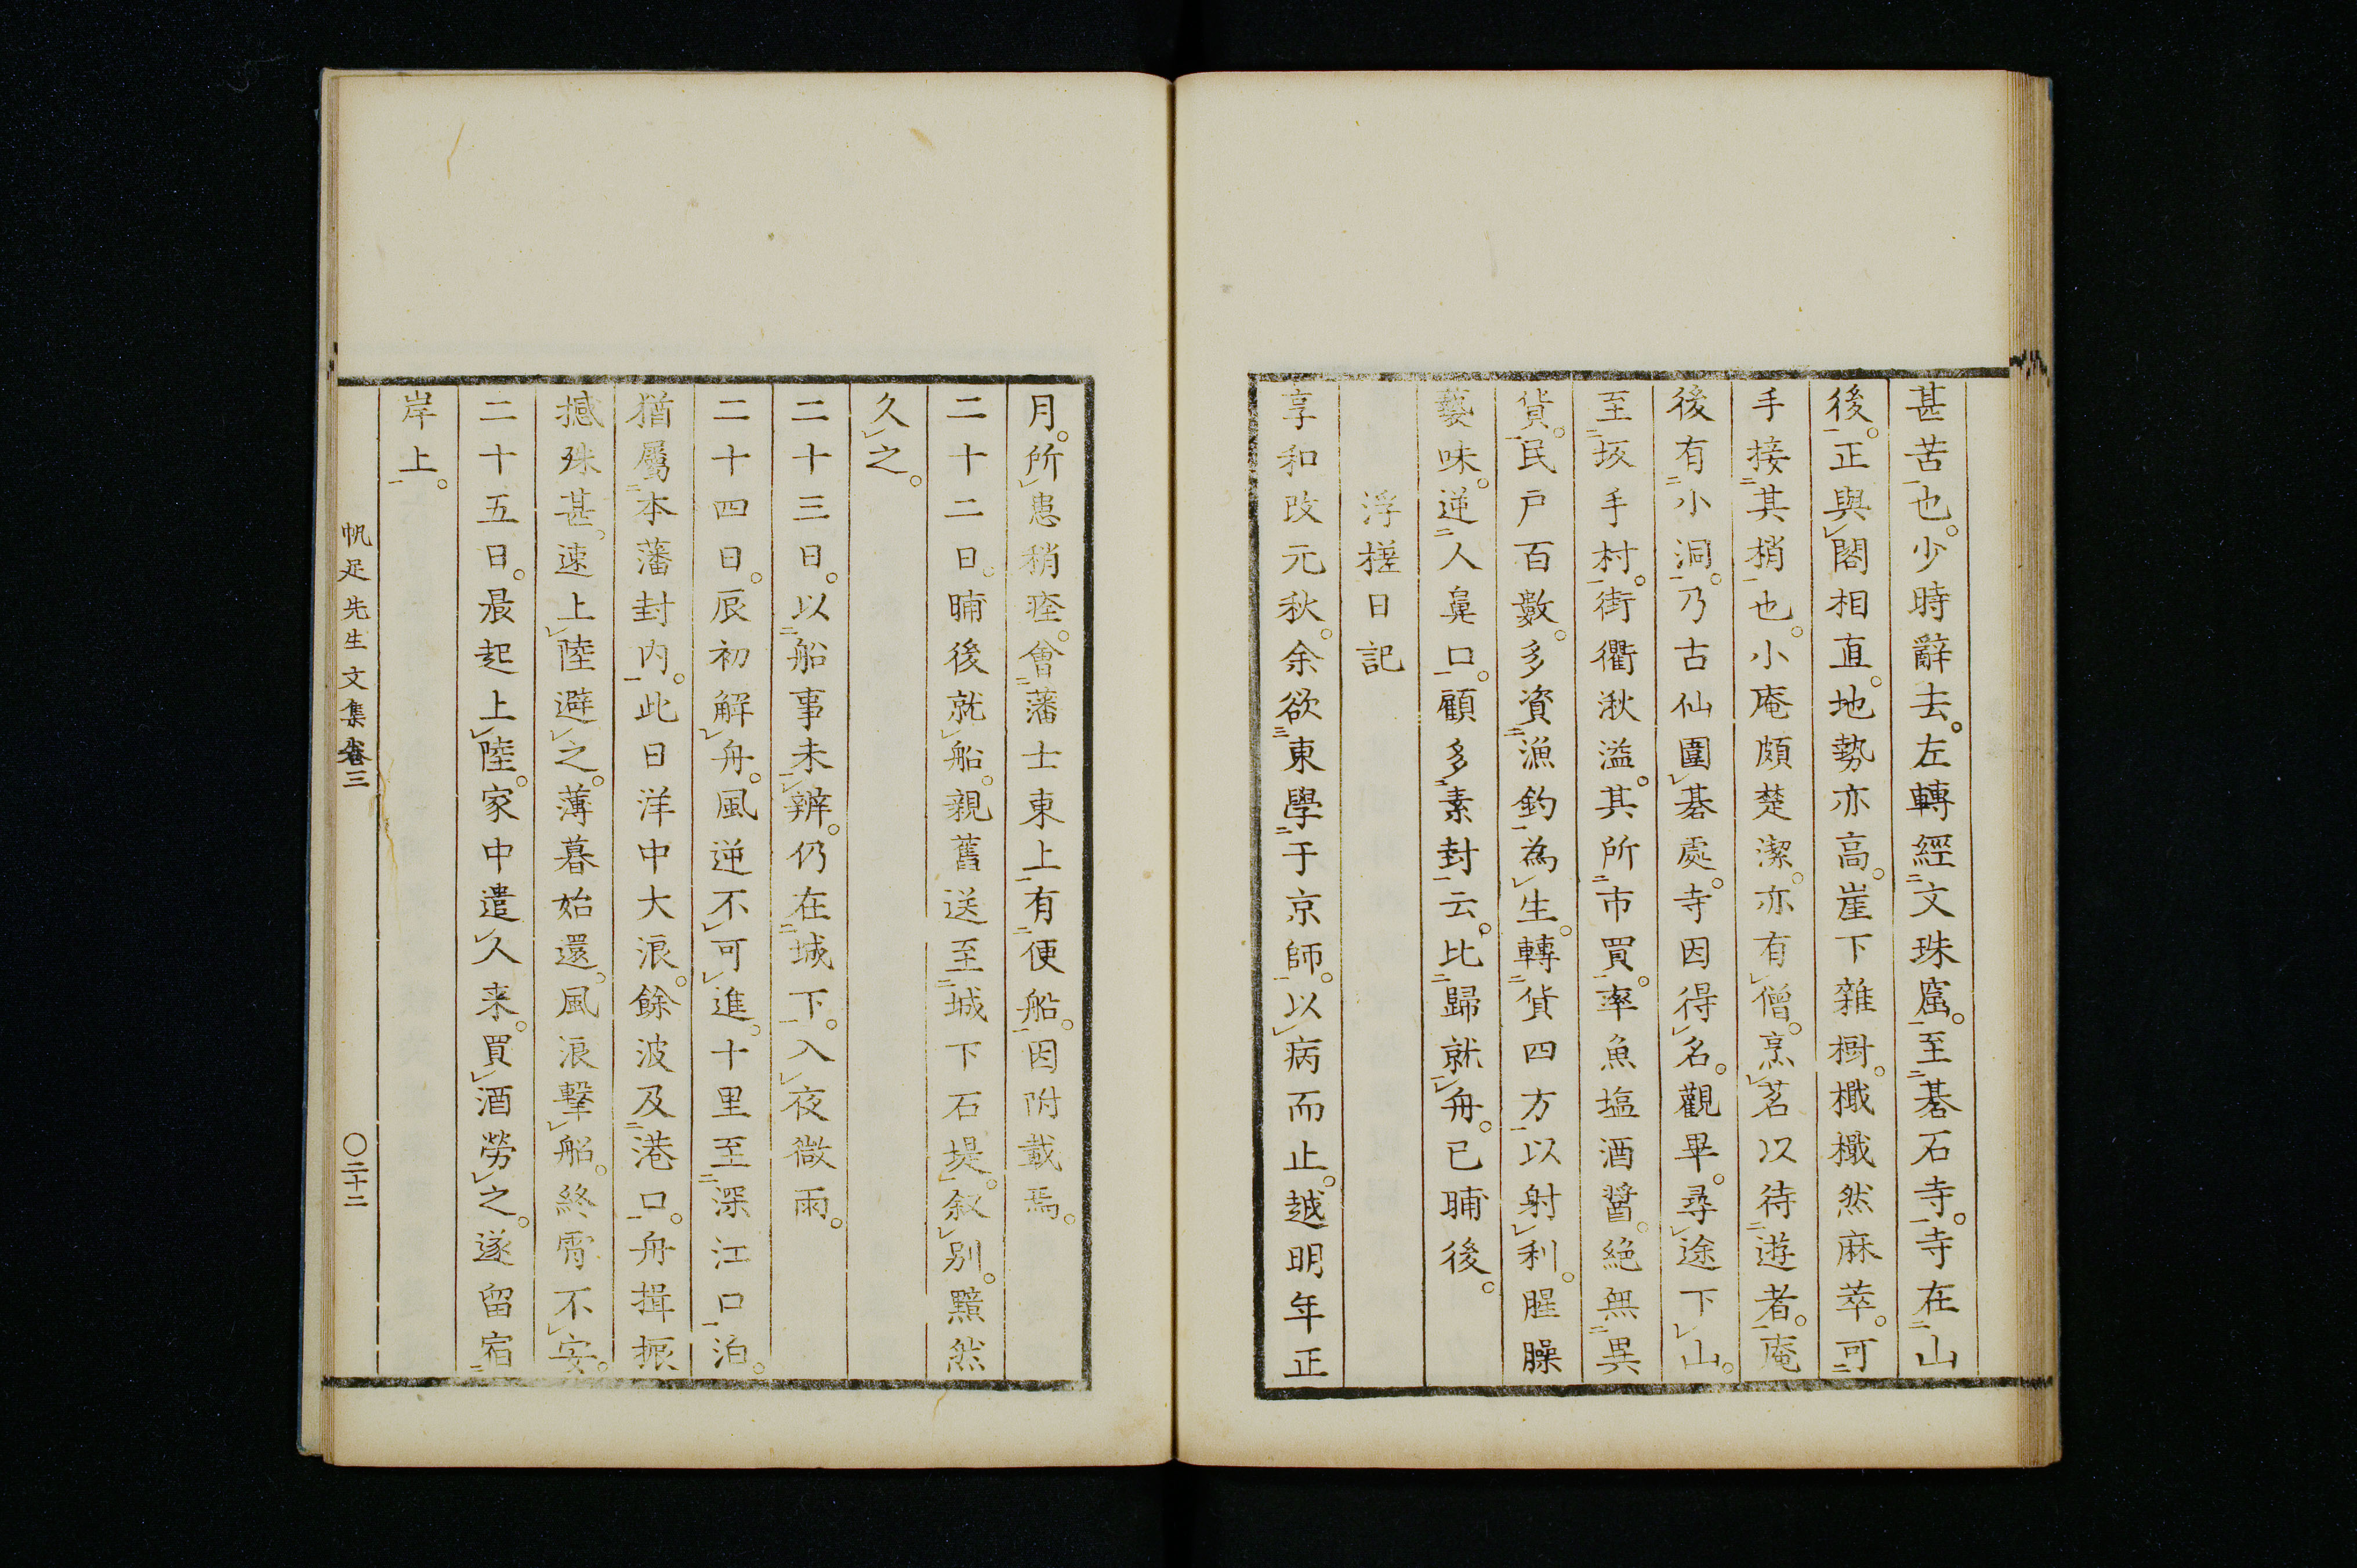 甚苦也。少時辭去。左轉經文珠窟。至碁石寺。寺在山
後。正與閣相直。地勢亦高。崖下雜樹。櫼櫼然麻萃。可
手接其梢也。小庵頗楚潔。亦有僧。烹茗以待遊者。庵
後有小洞。乃古仙圍碁處。寺因得名。觀畢。尋途下山。
至坂手村。街衢湫溢。其所市買。率魚塩酒醤。絶無異
貨。民戸百數。多資漁釣為生。轉貨四方以射利。腥臊
藝味。逆人鼻口。顧多素封云。比歸就舟。已晡後。
浮槎日記
享和改元秋。余欲東學于京師。以病而止。越明年正
月。所患稍痊。會藩士東上有便船。因附載焉。
二十二日。晡後就船。親舊送至城下石堤。叙别。黯然
久之。
二十三日。以船事未辨。仍在城下。入夜微雨。
二十四日。辰初解舟。風逆不可進。十里至深江口泊。
猶屬本藩封内。此日洋中大浪。餘波及港口。舟揖振
撼殊甚。速上陸避之。薄暮始還。風浪擊船。終霄不安。
二十五日。最起上陸。家中遣久来。買酒勞之。遂留宿
岸上。
帆足先生文集卷三
〇二十二